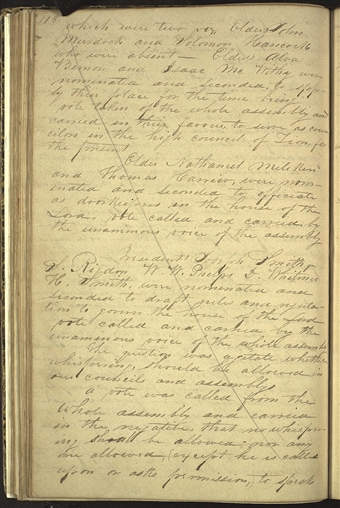 118
which were two viz Elders John
Murdock and Solomon Hancock
who were absent — Elders Alva
Beemon and Isaac Mc Withy were
nominated and seconded to
by their place for the time being
vote taken of the whole assembly and
carried in their favour to serve as coun
cilors in the high council of Zion, for
the present
Elder Nathaniel Miliken
and Thomas Carrico, were nom-
inated and seconded to officiate
as doorkeepers in the house of the
Lord. Vote called and carried by
the unanimous voice of the assembly
President Joseph Smith,
S. Rigdon W. W. Phelps D. Whitmer
H. Smith, were nominated and
seconded to draft rules and regula-
tion to govern the house of the Lord
vote called and carried by the
unanimous voice of the whole assembly
The question was whether
whispering, should be allowed in
our councils and assemblys
a vote was called from the
whole assembly and carried
in the negative, that no whisper-
ing shall be allowed nor any
one allowed, (except he is called
upon or asks permission,) to speak